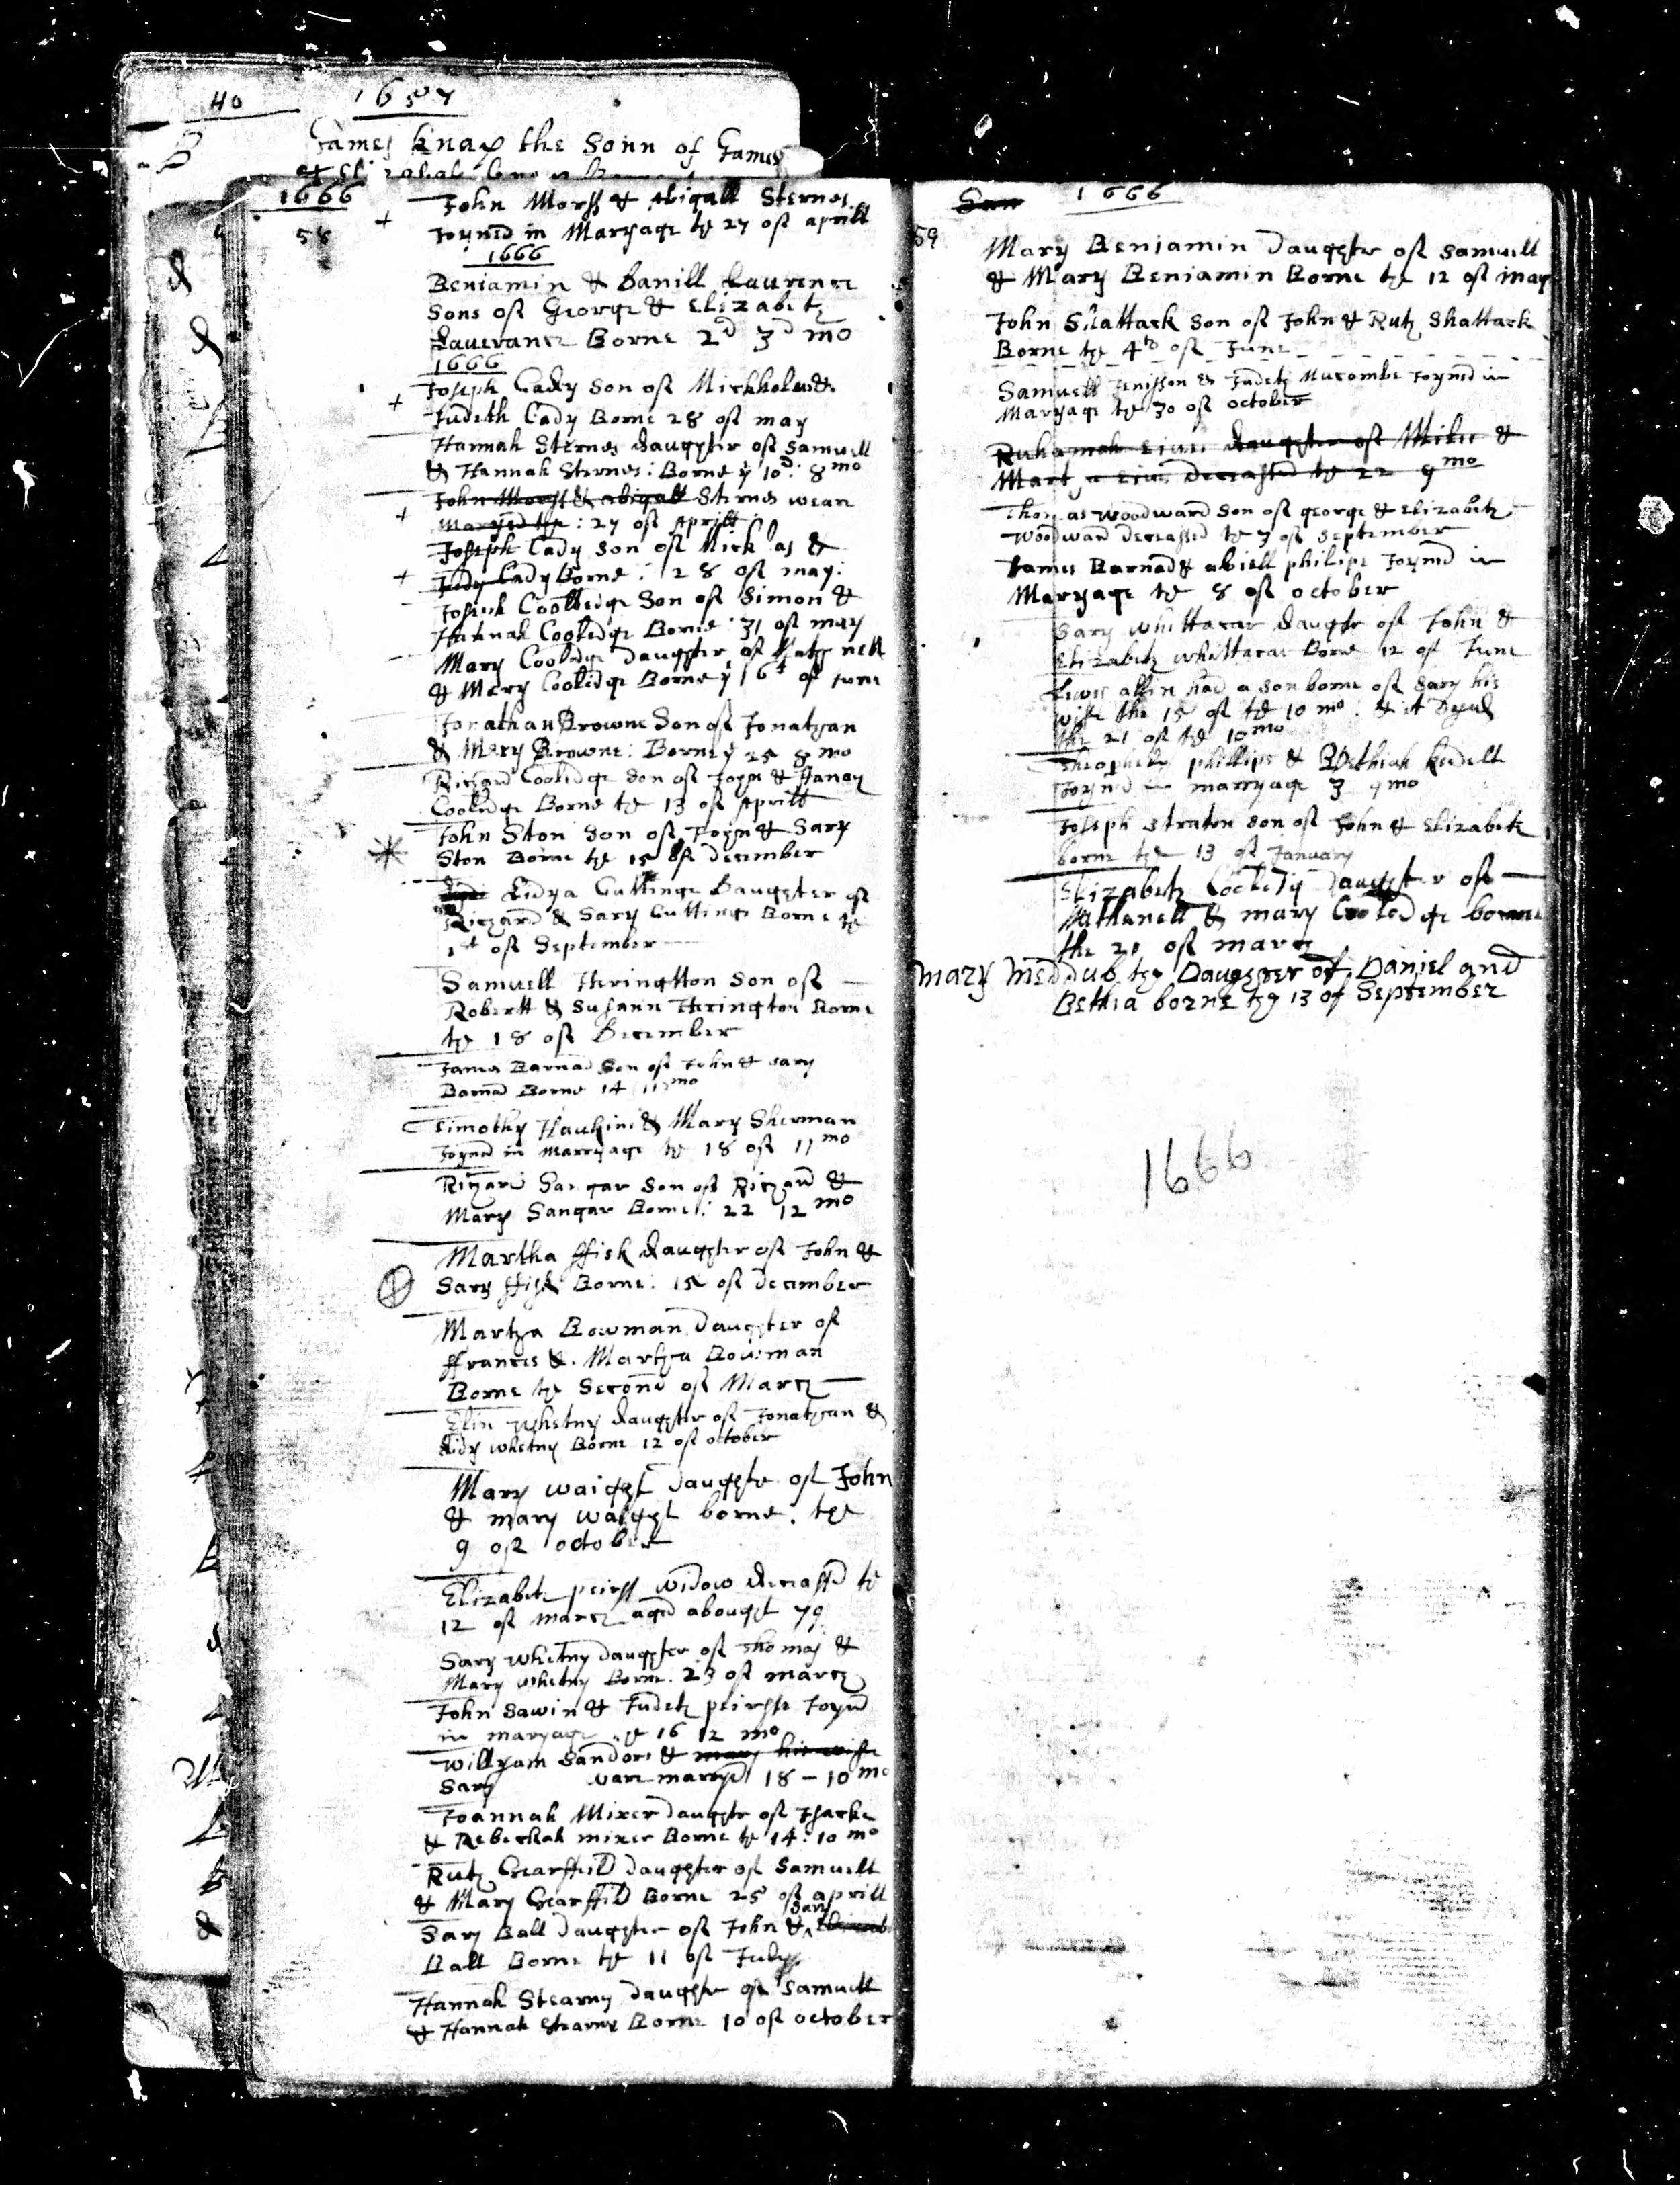 40 1657
B James Knap the Sonn of James
1666
58
John Morss & Abigall Sternes
Joyned in Maryage the 27 off aprill
1666
Beniamin & Daniill Laurence
Sons off George & Elizabeth
Lauerance Borne 2d 3d mo
1666
Joseph Cady Son off Nickholas &
Judeth Cady Borne 28 off may
Hannah Sternes daughter off Samuell
& Hannah Sternes: Borne y 10d: 8 mo
John Morss & abigall Sternes wear
Maryed the: 27 off Aprill
Joseph Cady Son off Nick las &
Judy Cady Borne: 28 off may:
Josiah Coolledge Son off Simon &
Hannah Cooledge Borne: 31 off may
Mary Cooledge daughter off Nathanell
& Mary Cooledge Borne y 16t off June
Jonathan Browne Son off Jonathan
& Mary Browne: Borne y 25 8 mo
Richard Cooledge Son off John & Hanah
Cooledge Borne the 13 off Aprill
John Ston Son off John & Sary
Ston Borne the 15 off december
Lidya Cuttinge Daughter off
Richard & Sary Cuttinge Borne the
1st off September
Samuell Heringtton Son off
Robertt & Susann Herington Borne
the 18 off December
James Barnad Son off John & Sary
Barnad Borne 14 11 mo
Timothy Haukins & Mary Sherman
Joyned in Marryage the 18 off 11 mo
Richard Sangar Son off Richard &
Mary Sangar Borne: 22 12 mo
Martha ffisk daughter off John &
Sary ffisk Borne: 15 off december
Martha Bowman daughter off
ffrances & Martha Bowman
Borne the Second off March
Elin Whetny daughter off Jonathan &
Lidy Whetny Borne 12 off october
Mary waight daughter off John
& mary waight borne. the
9 off october
Elizabeth peirss widow deceassd the
12 off march aged abought 79
Sary Whetny daughter off Thomas &
Mary Whetny Borne. 23 off march
John Sawin & Judeth peirsse Joynd
in maryage the 16 12 mo
Willyam Sandors & mary his wiffe
Sary ware marryd 18 - 10 mo
Joannah Mixer daughter off Isacke
& Rebeckah mixer Borne the 14: 10 mo
Ruth Gearffild daughter off Samuell
& Mary Gearffild Borne 25 off aprill
Sary Ball daughter off John & Sary
Ball Borne the 11 off July
Hannah Stearns daughter off Samuell
& Hannah Stearns Borne 10 off october
1666
59
Mary Beniamin daughter off Samuell
& Mary Beniamin Borne the 12 off may
John Shattack Son off John & Ruth Shattack
Borne the 4th off June
Samuell Jenisson & Judeth Mucombe Joyned in
Maryage the 30 off october
Ruhamah daughter off Miles &
deceassed the 22 9 mo
Thomas Woodward Son off george & Elizabeth
Woodward deceassed the 7 off september
James Barnad & abiell philips Joyned in
Maryage the 8 off october
Sary Whittacar daughter off John &
Elizabeth Whittacar Borne 12 off June
Lewis allin had a son borne off Sary his
wiffe the 15 off the 10 mo: & it dyed
the 21 off the 10 mo
Theophilus phillips & Bethiah Kedell
Joyned in marryage 3 9 mo
Joseph Straton son off John & Elizabeth
borne the 13 off January
Elizabeth Cooledg daughter off
Nathanell & mary Cooledge borne
the 21 off march
Mary Meddup the Daughter of Daniel and
Bethia borne the 13 of September
1666